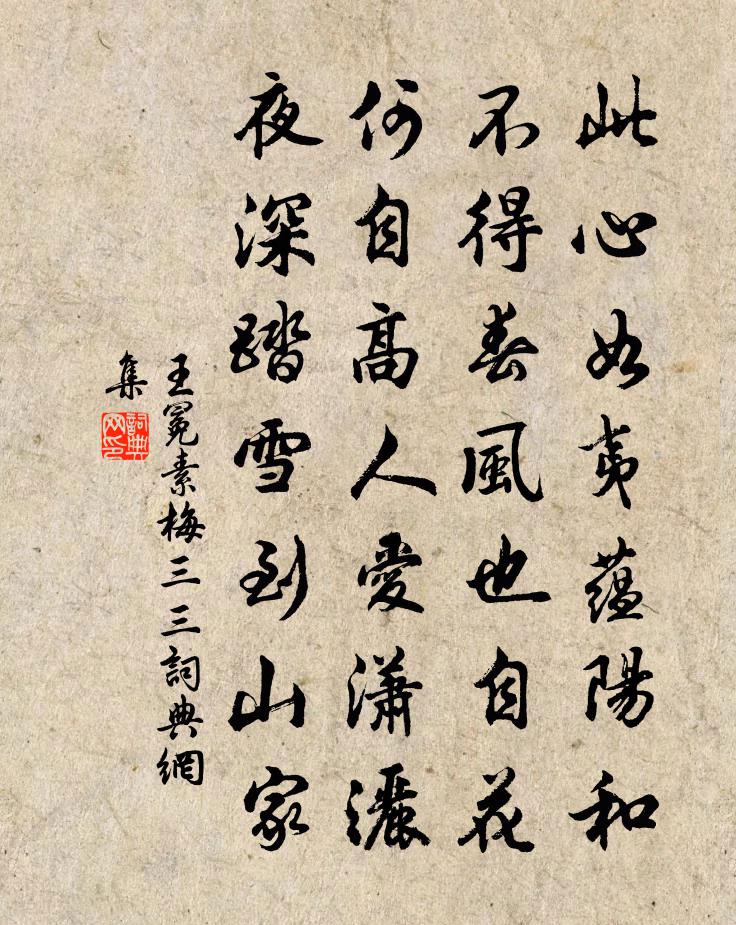 此心如夷蘊陽和
不得春風也自花
何自高人愛瀟灑
夜深踏雪到山家
王冕素梅三三詞典網
集
詞典网印